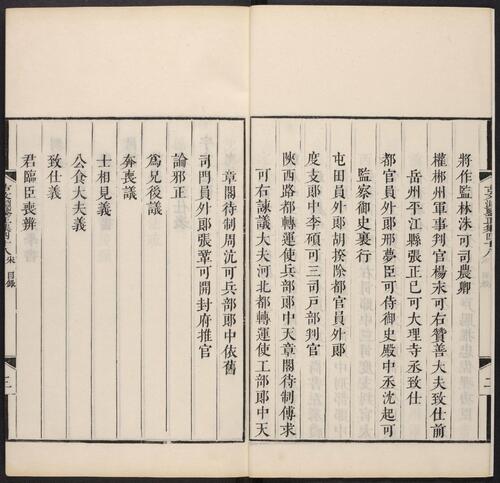 將作監林洙可司農卿
權郴州軍事判官楊汞可右贊善大夫致仕前
岳州平江縣張正巳可大理寺丞致仕
都官員外郎邢夢臣可侍御史殿中丞沈起可
監察御史裏行
屯田員外郎胡揆除都官員外郎
度支郎中李碩可三司戸部判官
陝西路都轉運使兵部郎中天章閣待制傅求
可右諫議大夫河北都轉運使工部郎中天
二
章閣待制周沈可兵部郎中依舊
司門員外郎張鞏可開封府推官
論邪正
爲兄後議
奔喪議
士相見義
公食大夫義
致仕義
君臨臣喪辨
目錄
三